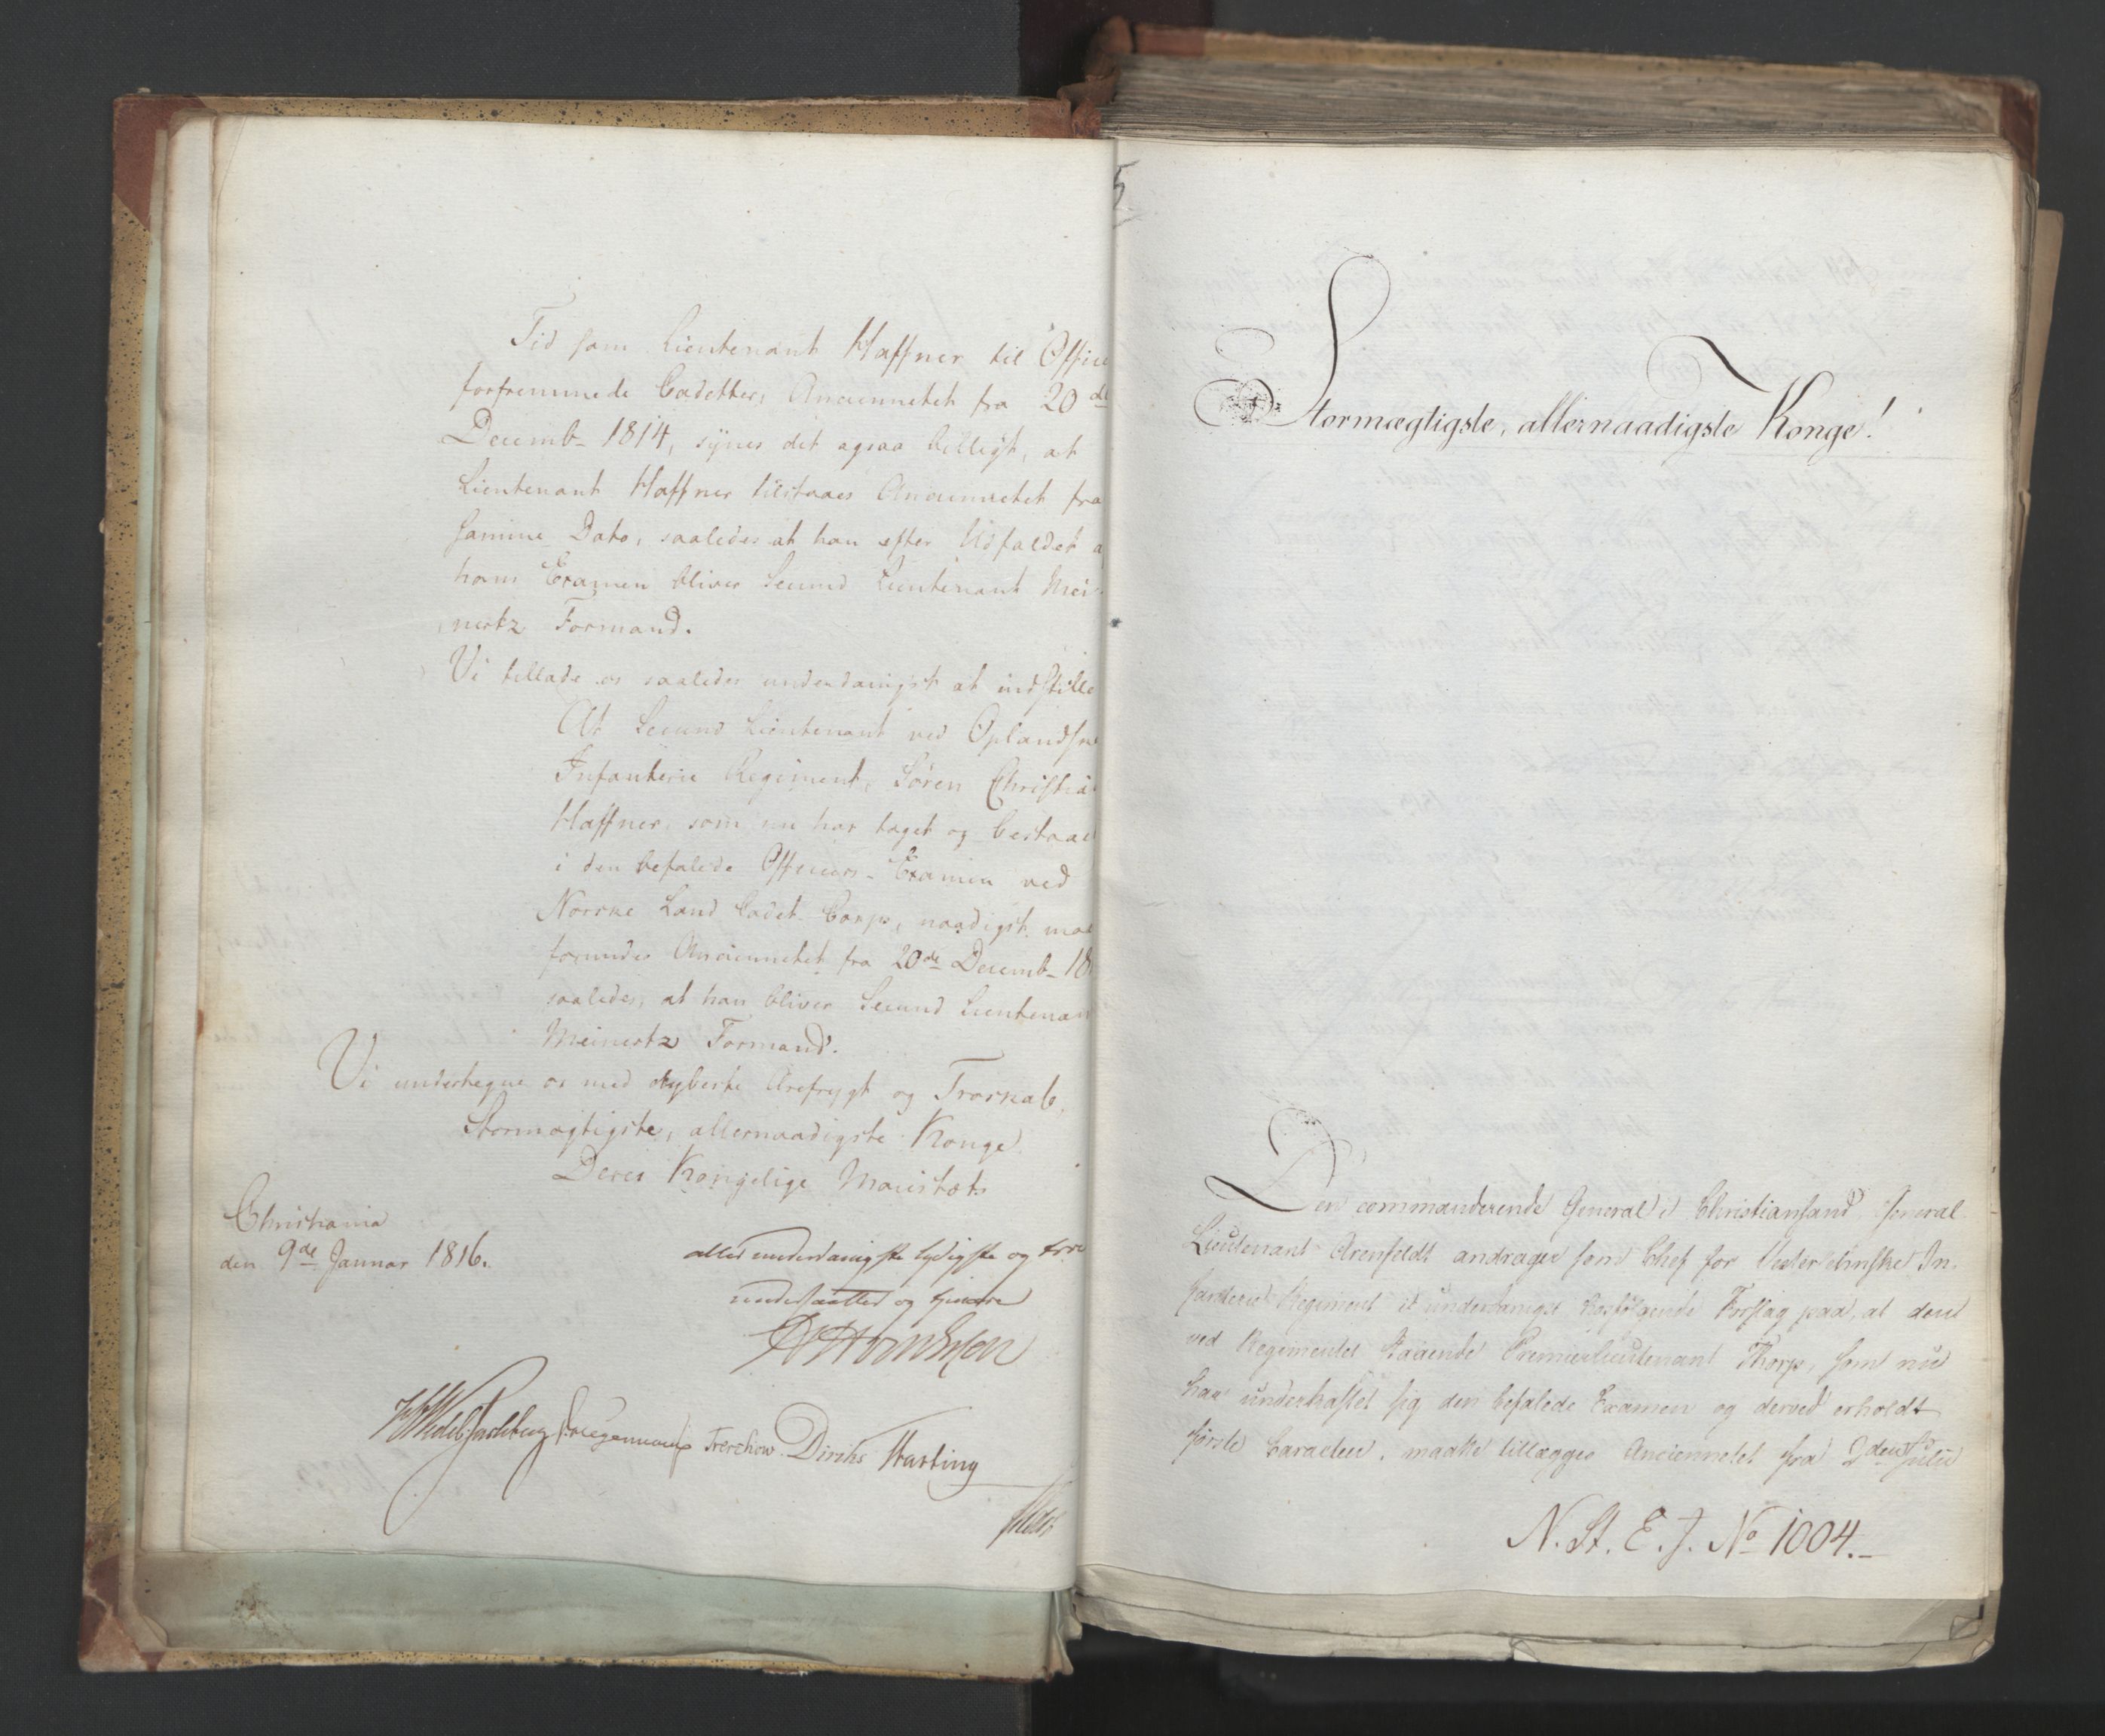 Tid som Lieutenant Haffner til Office
forfremmede Cadetter, Anciennetet fra 20de
Decemb- 1814, synes det ogsaa billigt, at
Lieutenant Haffner tilstaaes Anciennetet fra
samme Dato, saaledes at han efter Udfaldet a
hans Examen bliver Secund Lieutenant Mei-
nertz Formand.
Vi tillade os saaledes underdanigst at indstille
At Secund Lieutenant ved Oplandske
Infanterie Regiment, Sören Christia
Haffner, som nu har taget og bestaae
i den befalede Officiers-Examen ved
Norske Land Cadet-Corps, naadigst maa
forundes Anciennetet fra 20de Decemb- 18
saaledes, at han bliver Secund Lieutenan
Meinertz Formand.
Vi undertegne os med dybeste Ærefrygt og Troskab,
Stormægtigste, allernaadigste Konge
Deres Kongelige Maiestæts
Christiania
den 9de Januar 1816.
allerunderdanigste lydigste og troe
undersaatter og tjenere
Sommerhielm Trerchow Diriks Hasting
5
Stormægtigste, allernaadigste Konge!
Den commanderende General i Christiansand, General
Lieutenant Arenfeldt andrager som Chef for Vesterlehnske In-
fanterie Regiment i underdanigst hosfölgende Forslag paa, at den
ved Regimentet staaende Premierlieutenant Thorp, som nu
har underkastet sig den befalede Examen og derved erholdt
förste Caracteer, maatte tillægges Anciennetet fra 2den Julii
N. St. E. J. No 1004.-